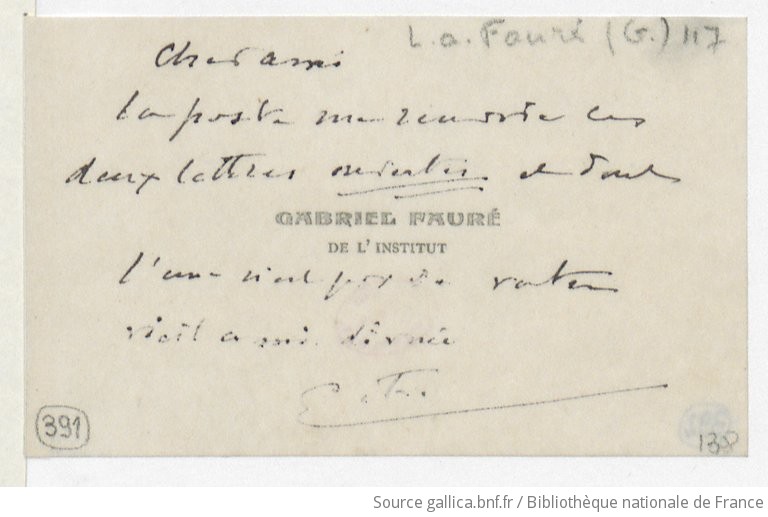 L. a. Fauré (G.) 117
Cher ami
La poste me renvoie les
deux lettres et dont
GABRIEL FAURÉ
DE L'INSTITUT
l'une n'est pas de votre
vieil ami
391
138
Source gallica.bnf.fr / Bibliothèque nationale de France